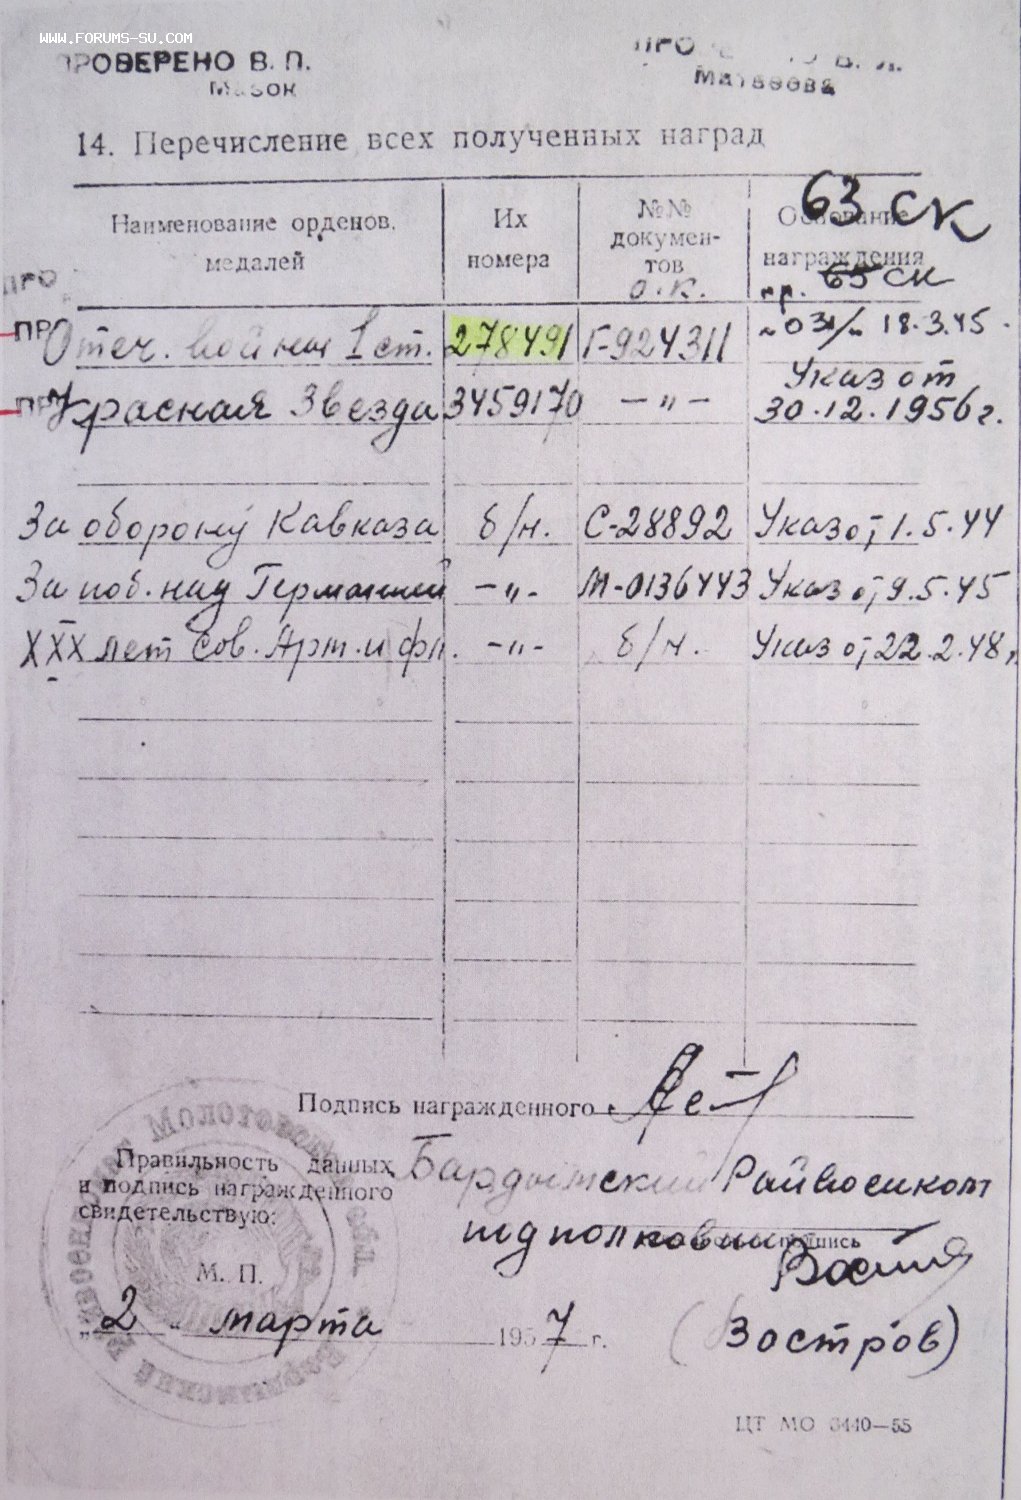 WWW.FORUMS-SU.COM
ПРОВЕРЕНО В. П.
Мазок
Матвеева
14. Перечисление всех полученных наград
Наименование орденов, медалей
Их номера
№№ документов
о.к.
Основание награждения
63 СК
пр. 65 СК
ПРО
ПРО
Отеч. войны 1 ст. 278491 Г-924311 №031/н 18.3.45.
ПРО
Красная Звезда 3459170 —"— Указ от 30.12.1956г.
За оборону Кавказа б/н. С-28892 Указ от 1.5.44
За поб. над Германией —"- М-0136443 Указ от 9.5.45
XXX лет Сов. Арм. и фл. —"- б/н. Указ от 22.2.48г
Подпись награжденного
Правильность данных
и подпись награжденного
свидетельствую:
Бардымский Райвоенком
подполковник
подпись
М. П.
„2" марта 1957 г.
(Востров)
ЦТ МО 6440—55